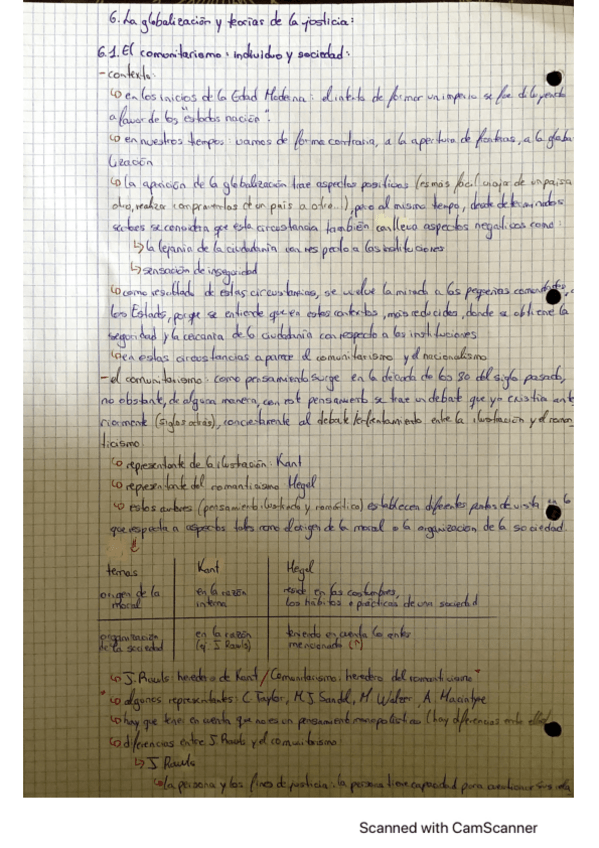 6. La globalización y teorías de la justicia:
6.1. El comunitarismo: individuo y sociedad:
- contexto:
↳ en los inicios de la Edad Moderna: el intento de formar un imperio se fue diluyendo
a favor de los "estados nación".
↳ en nuestros tiempos: vamos de forma contraria, a la apertura de fronteras, a la globa
lización
↳ la aparición de la globalización trae aspectos positivos (es más fácil viajar de un país a
otro, realizar compraventas de un país a otro...), pero al mismo tiempo, desde determinados
sectores se considera que esta circunstancia también conlleva aspectos negativos como:
↳ la lejanía de la ciudadanía con respecto a las instituciones
↳ sensación de inseguridad
↳ como resultado de estas circunstancias, se vuelve la mirada a las pequeñas comunidades,
los Estados, porque se entiende que en estos contextos, más reducidos, donde se obtiene la
seguridad y la cercanía de la ciudadanía con respecto a las instituciones
↳ en estas circunstancias aparece el comunitarismo y el nacionalismo
- el comunitarismo: como pensamiento surge en la década de los 80 del siglo pasado,
no obstante, de alguna manera, con este pensamiento se trae un debate que ya existía ante
riormente (siglos atrás), concretamente al debate/enfrentamiento entre la ilustración y el roman
ticismo.
↳ representante de la ilustración: Kant
↳ representante del romanticismo: Hegel
↳ estos autores (pensamiento ilustrado y romántico) establecen diferentes puntos de vista en lo
que respecta a aspectos tales como el origen de la moral o la organización de la sociedad
↓
temas | Kant | Hegel
origen de la moral | en la razón interna | reside en las costumbres, los hábitos o prácticas de una sociedad
organización de la sociedad | en la razón (ej: J. Rawls) | teniendo en cuenta lo antes mencionado (↑)
↳ J. Rawls: heredero de Kant / Comunitarismo: heredero del romanticismo
↳ algunos representantes: C. Taylor, M. J. Sandel, M. Walzer, A. Macintyre
↳ hay que tener en cuenta que no es un pensamiento monopolístico (hay diferencias entre ellos)
↳ diferencias entre J. Rawls y el comunitarismo:
↳ J. Rawls
↳ la persona y los fines de justicia: la persona tiene capacidad para cuestionar
Scanned with CamScanner